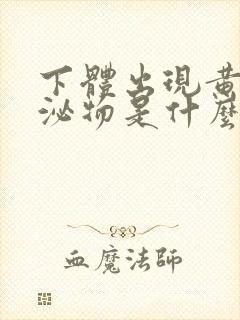 下體出現黃
泌物是什麼
血魔法師